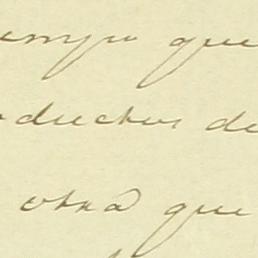 empo que
oductos de
otra que